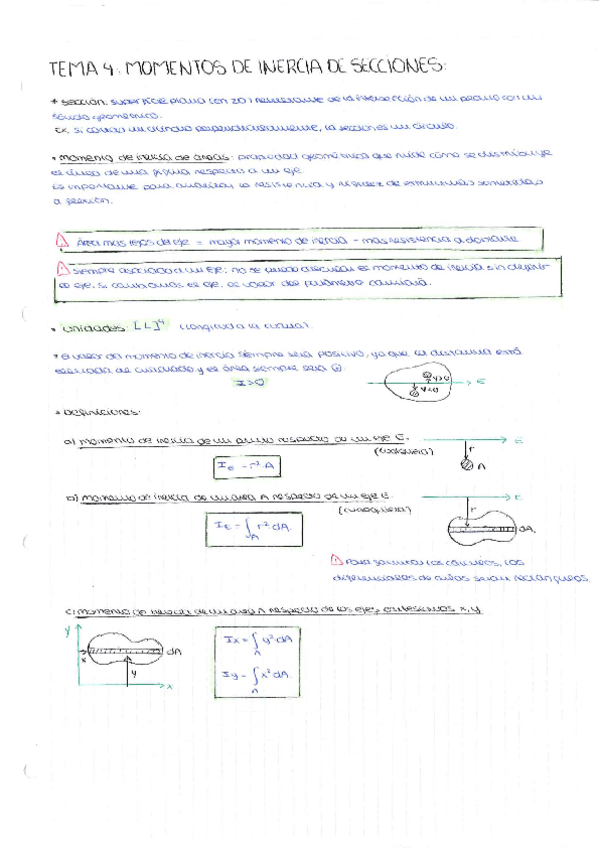 TEMA 4: MOMENTOS DE INERCIA DE SECCIONES:
* sección: superficie plana (en 2D) resultante de la intersección de un plano con un
sólido geométrico.
Ex. si cortas un cilindro perpendicularmente, la sección es un círculo.
• momento de inercia de áreas: propiedad geométrica que mide cómo se distribuye
el área de una figura respecto a un eje
es importante para analizar la resistencia y rigidez de estructuras sometidas
a flexión.
⚠ Área más lejos del eje = mayor momento de inercia - más resistencia a doblarse
⚠ Siempre asociada a un EJE: no se puede calcular el momento de inercia sin definir
el eje. si cambiamos el eje, el valor del parámetro cambiará.
• unidades: [L]⁴ (longitud a la cuarta).
* el valor del momento de inercia siempre será positivo, ya que la distancia está
elevada al cuadrado y el área siempre será ⊕:
I>0
y>0
y<0
E
* Definiciones:
a) momento de inercia de un punto respecto de un eje E.
(cualquiera)
I_E = r²·A
E
r
A
b) momento de inercia de un área A respecto de un eje E
(cualquiera)
I_E = ∫_A r² dA.
E
r
dA.
⚠ Para facilitar los cálculos, los
diferenciales de áreas serán rectángulos.
c) momento de inercia de un área A respecto de los ejes cartesianos x, y
y
x
dA
y
x
Ix = ∫_A y² dA
Iy = ∫_A x² dA.